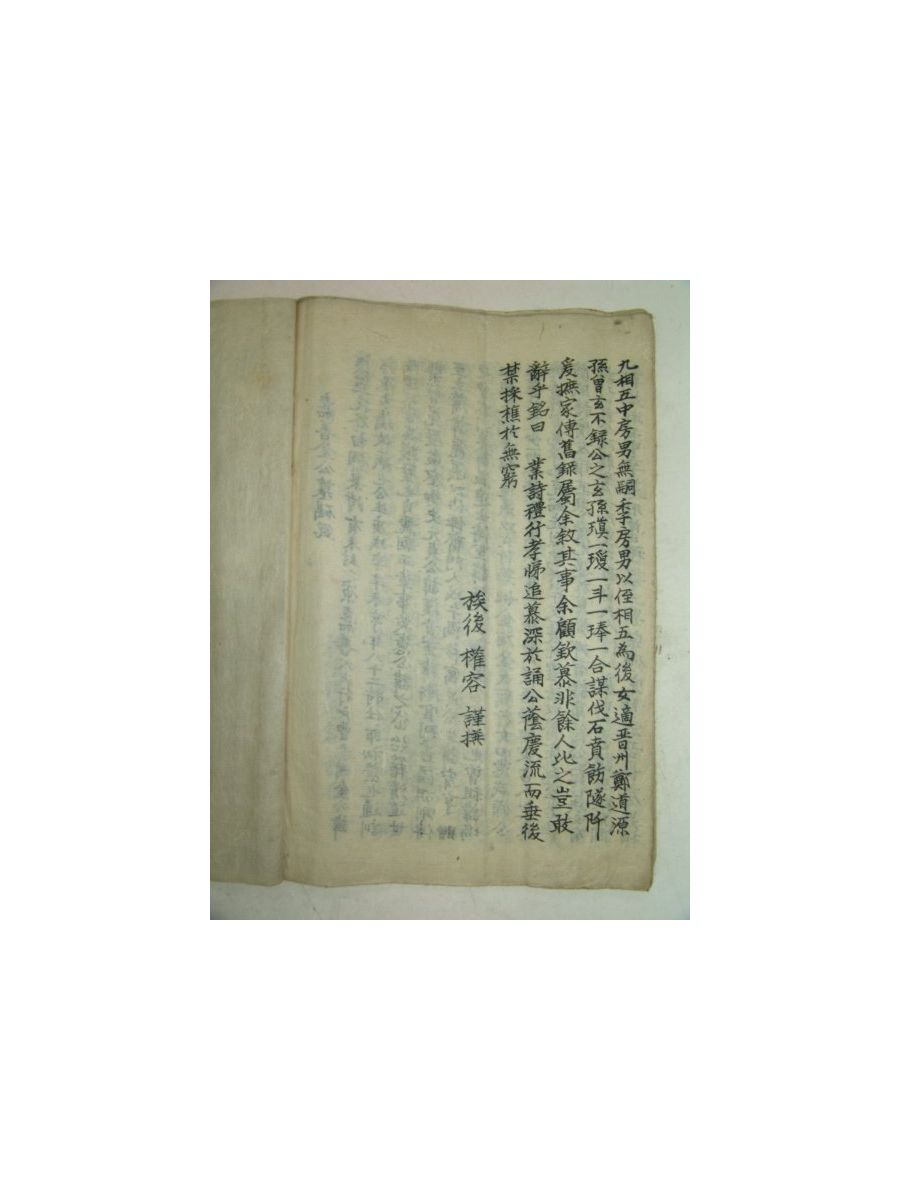 九相五中房男無嗣季房男以侄相五為後女適晋州鄭道源
孫曾玄不錄公之玄孫璜一瑷一斗一琫一合謀伐石賁飭隧阡
爰摭家傳舊錄屬余敘其事余顧欽慕非餘人比之豈敢
辭乎銘曰 業詩禮行孝悌追慕深於誦公蔭慶流而垂後
禁採樵於無窮
族後 權容 謹撰